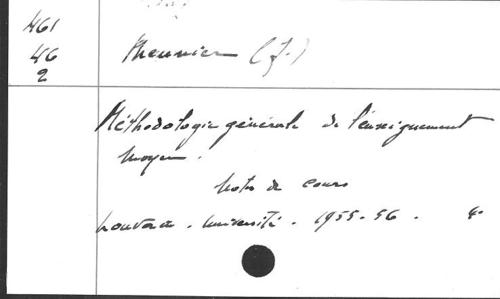 461
46
2
Meunier (J.)
Méthodologie générale de l'enseignement
moyen.
Notes de cours
Louvain. Université. 1955-56. 4°